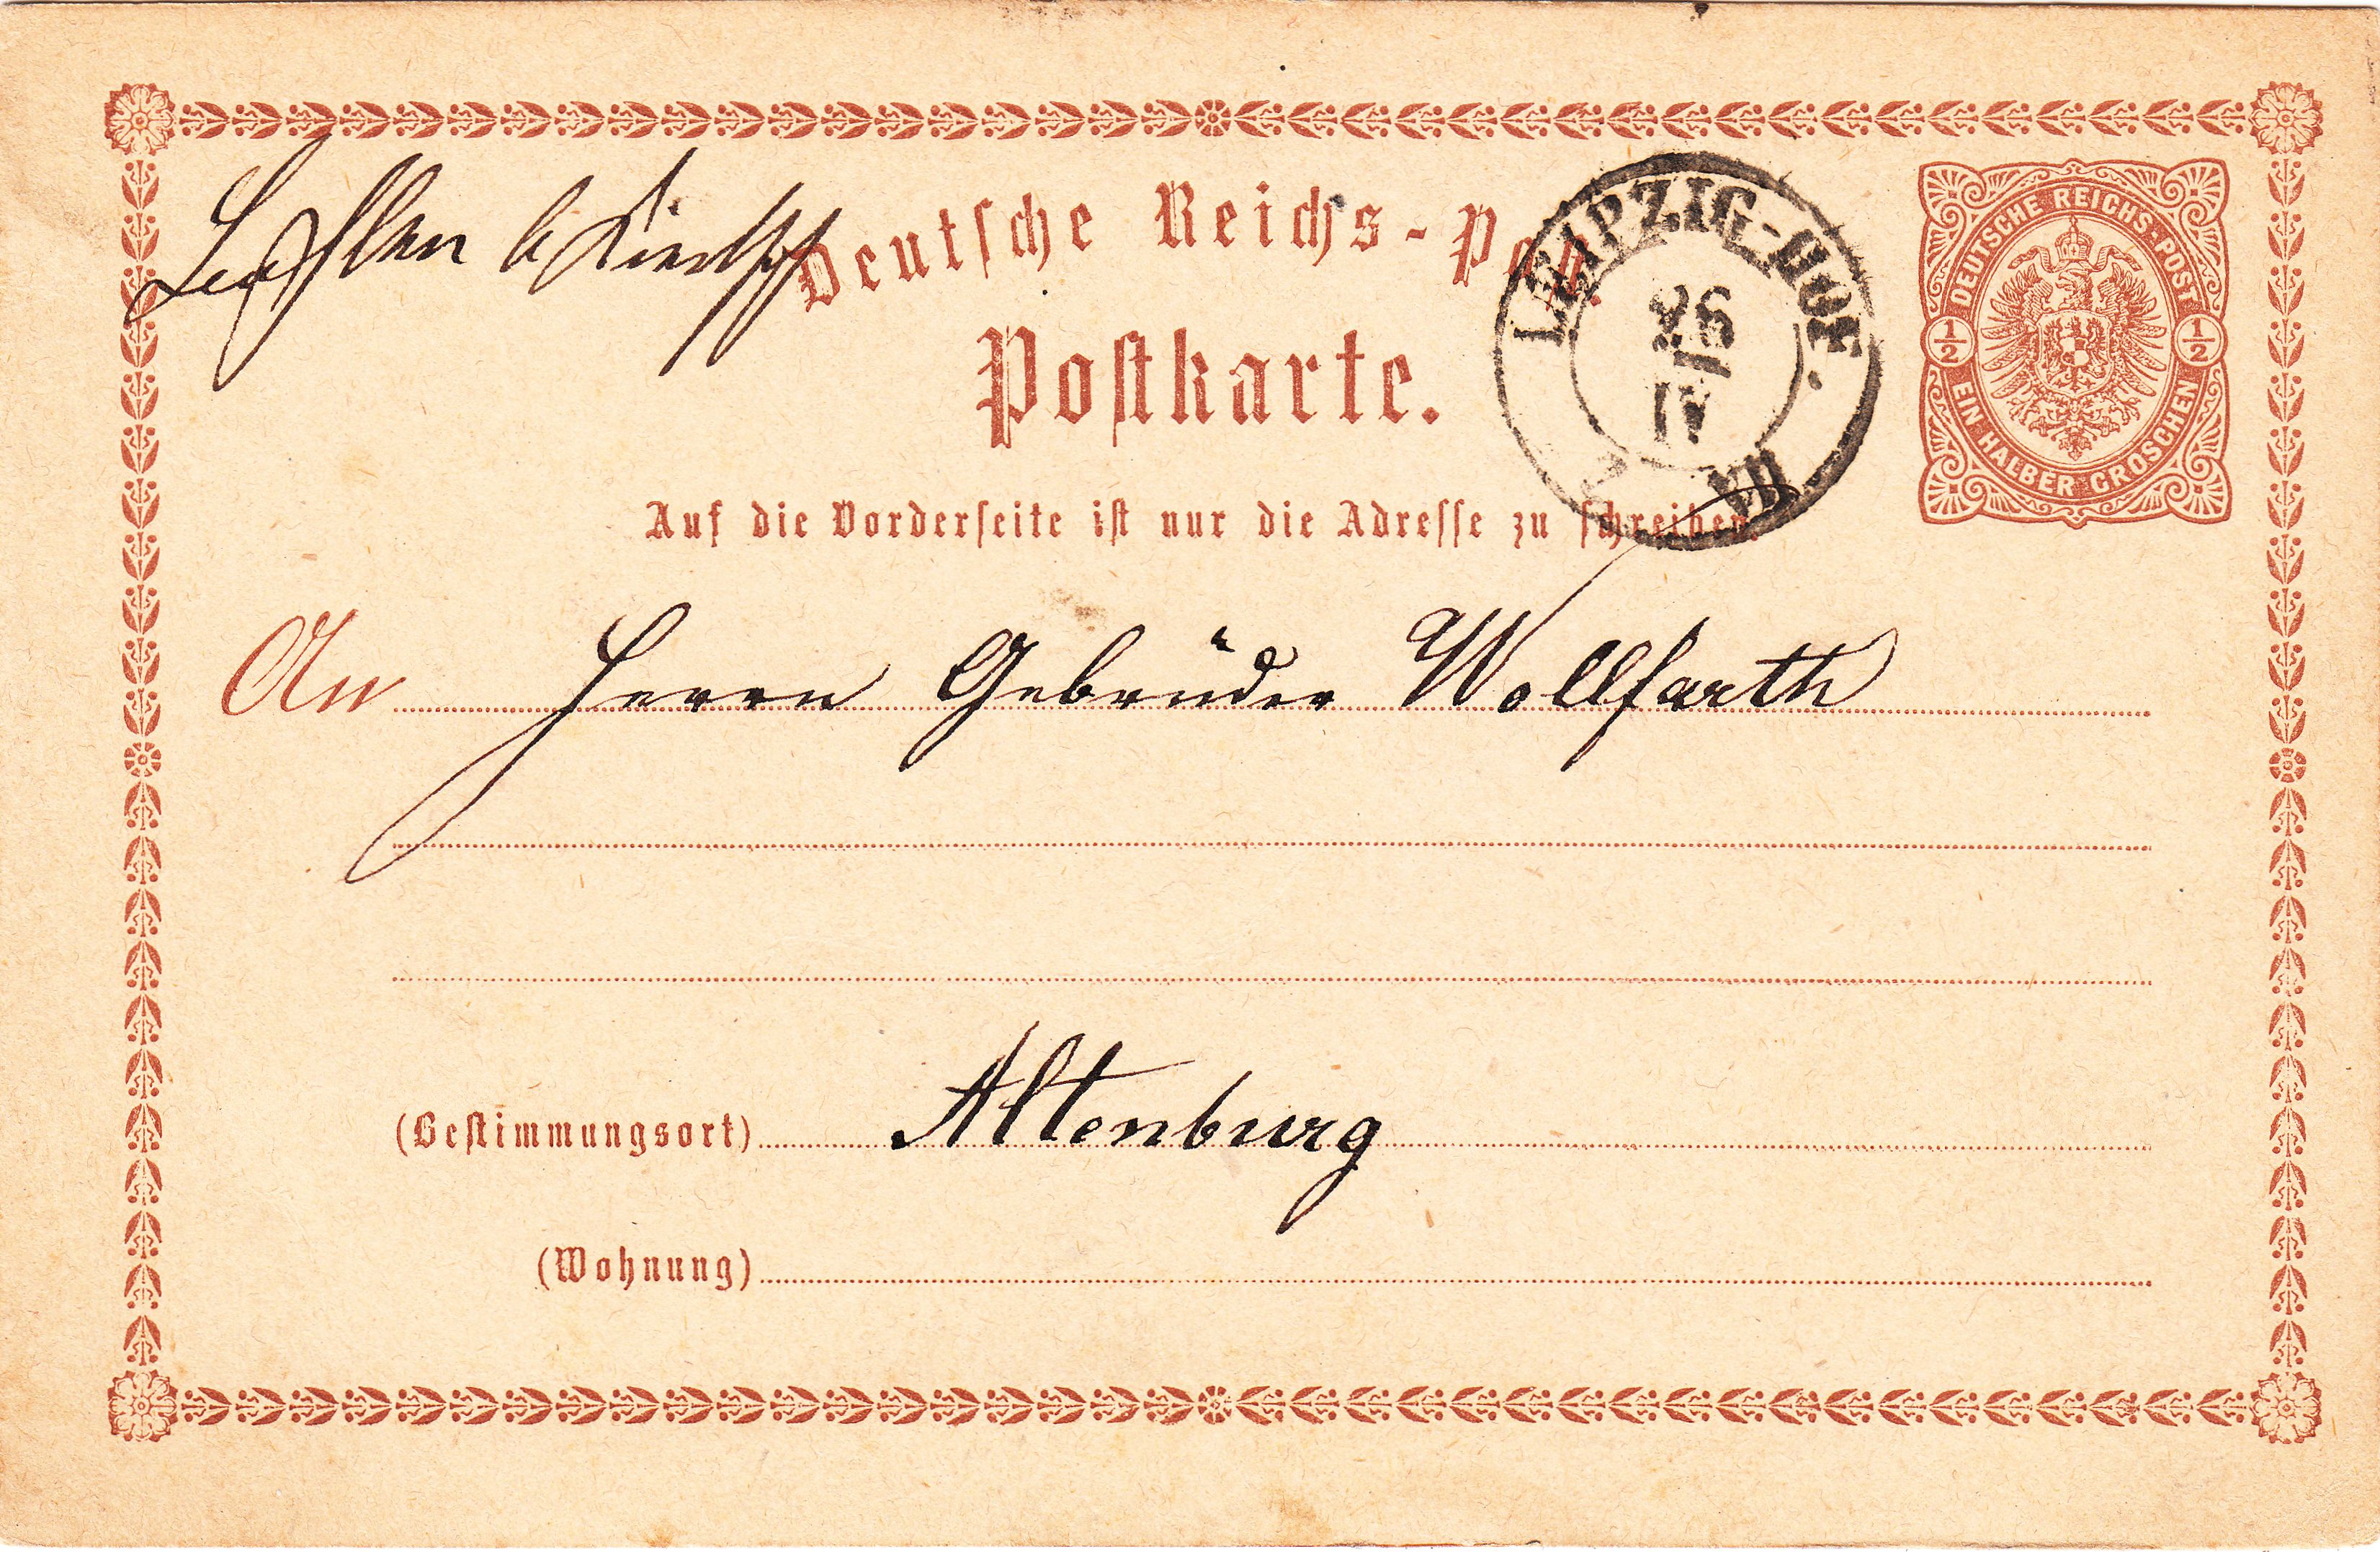 Deutsche Reichs-Post.
Postkarte.
LEIPZIG-HOF.
26
IV
VII
DEUTSCHE REICHS-POST
1/2 1/2
EIN HALBER GROSCHEN
Auf die Vorderseite ist nur die Adresse zu schreiben.
An Herrn Gebrüder Wollfarth
(Bestimmungsort) Altenburg
(Wohnung)